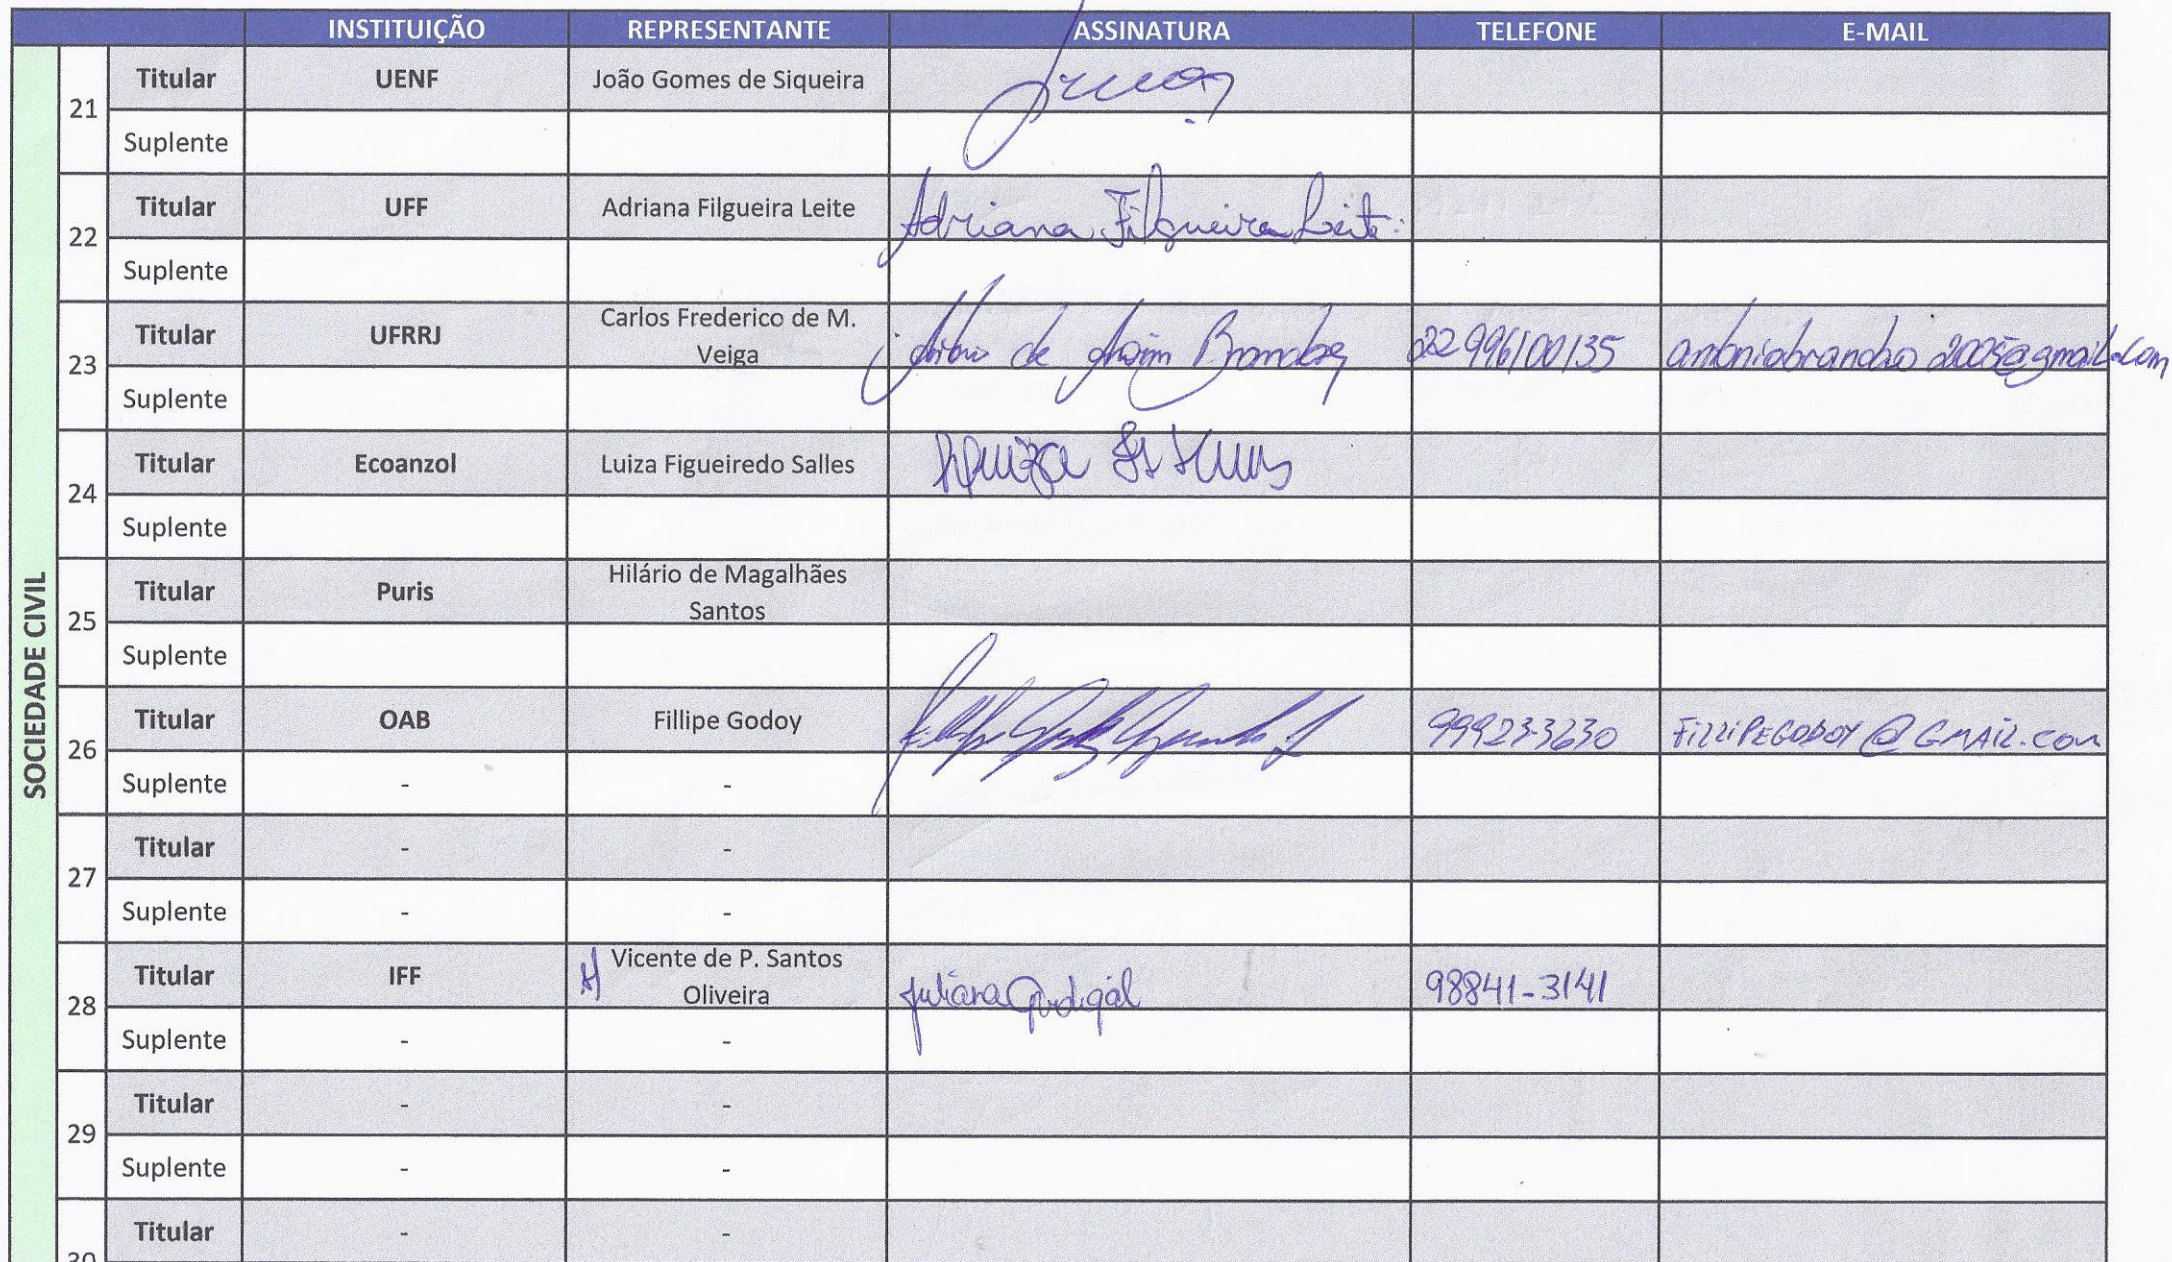 INSTITUIÇÃO REPRESENTANTE ASSINATURA TELEFONE E-MAIL
SOCIEDADE CIVIL
21 Titular UENF João Gomes de Siqueira
Suplente
22 Titular UFF Adriana Filgueira Leite Adriana Filgueira Leite
Suplente
23 Titular UFRRJ Carlos Frederico de M.
Veiga
de Brandão 22 996100135 antoniobrandao2005@gmail.com
Suplente
24 Titular Ecoanzol Luiza Figueiredo Salles Luiza
Suplente
25 Titular Puris Hilário de Magalhães
Santos
Suplente
26 Titular OAB Fillipe Godoy 999233630 FILLIPEGODOY@GMAIL.COM
Suplente - -
27 Titular - -
Suplente - -
28 Titular IFF Vicente de P. Santos
Oliveira
Juliana 98841-3141
Suplente - -
29 Titular - -
Suplente - -
30 Titular - -